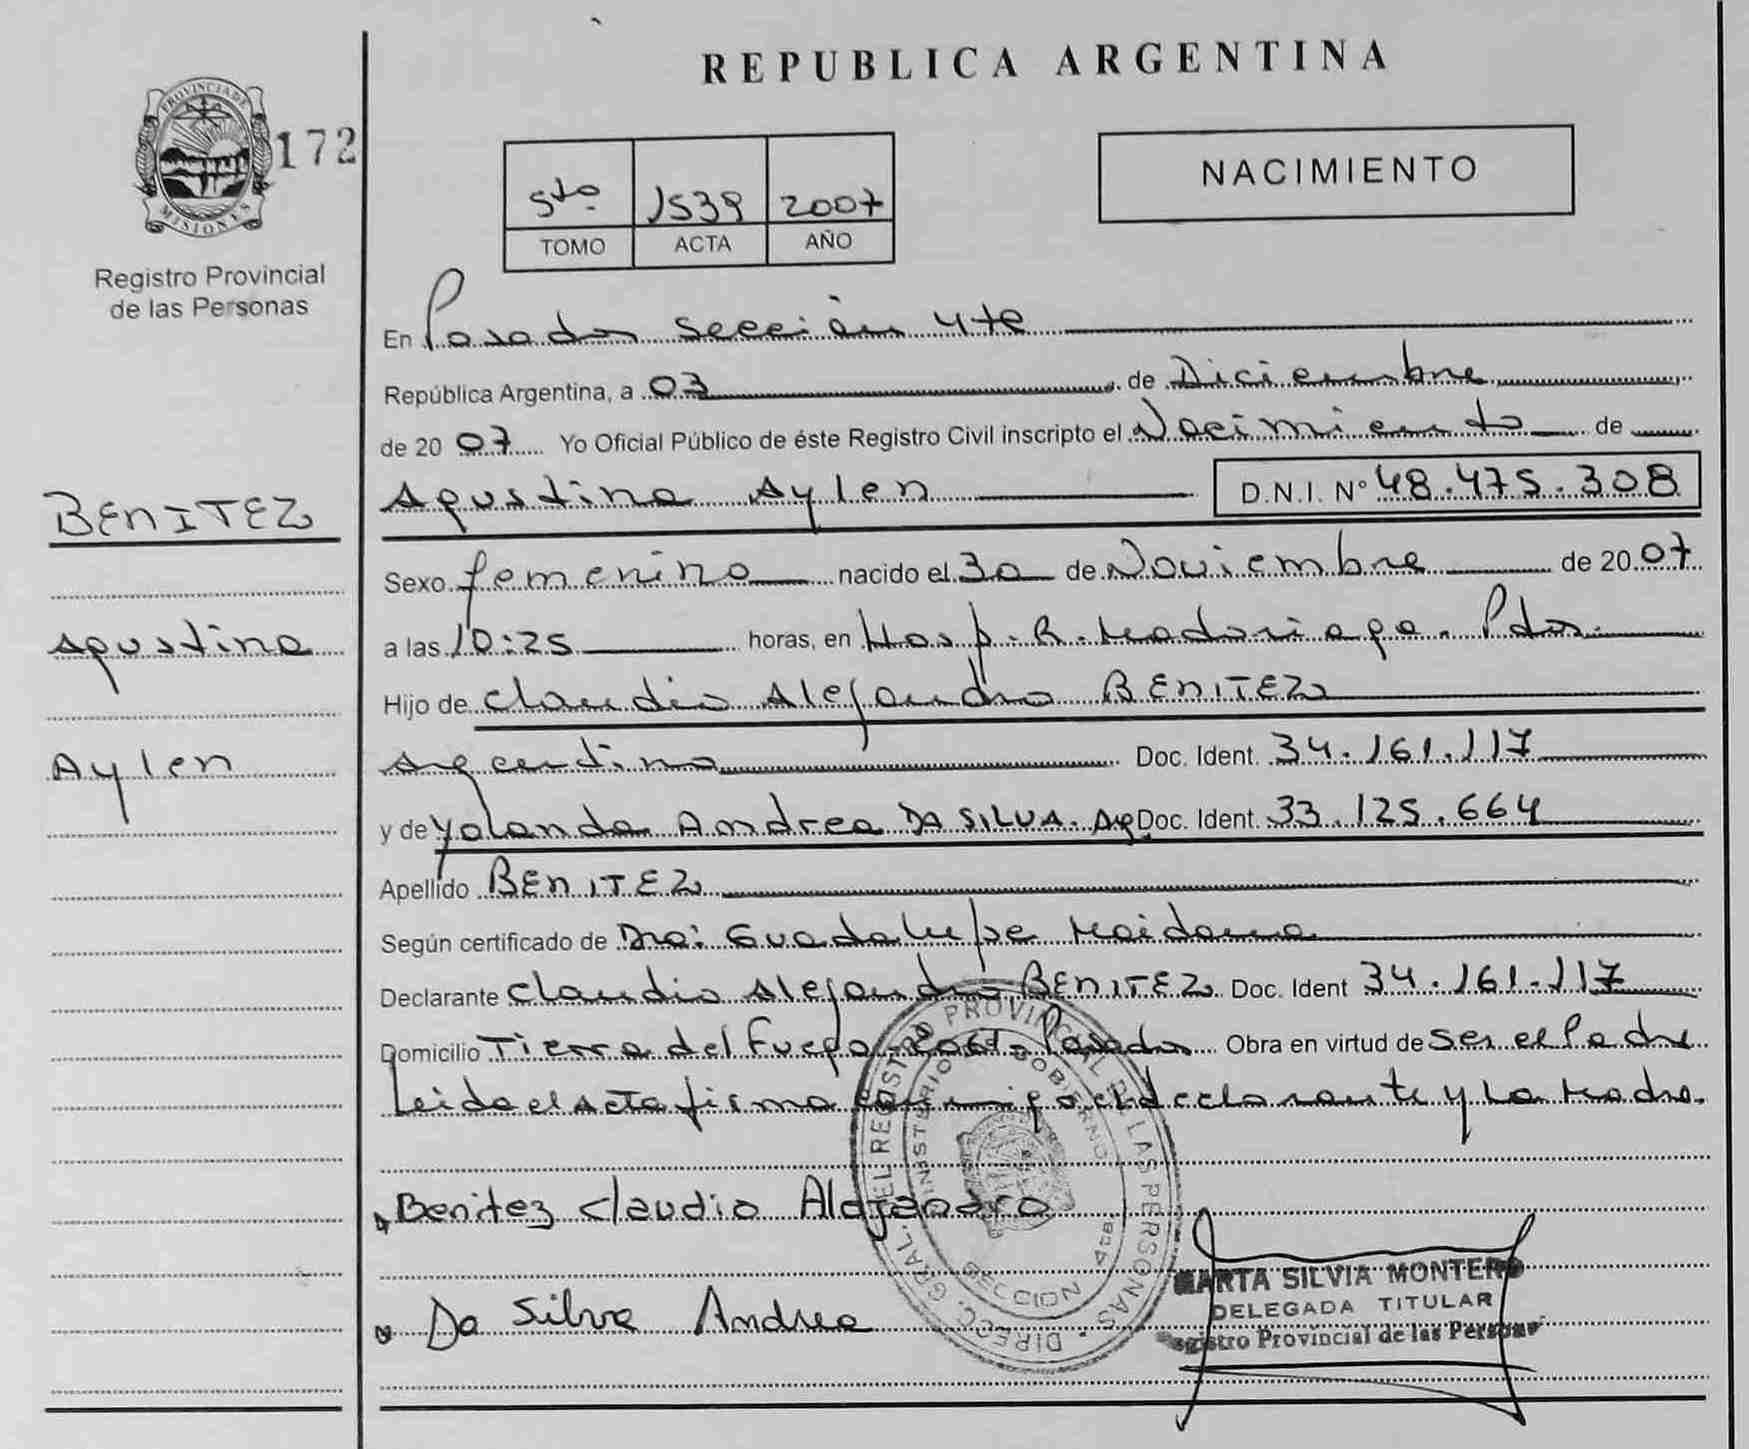 REPUBLICA ARGENTINA
PROVINCIA DE
MISIONES
172
Registro Provincial
de las Personas
5to 1539 2007
TOMO ACTA AÑO
NACIMIENTO
En Posadas sección 4ta
República Argentina, a 03 de Diciembre
de 2007 Yo Oficial Público de éste Registro Civil inscripto el Nacimiento de
Agustina Aylen D.N.I. N° 48.475.308
BENITEZ
Agustina
Aylen
Sexo femenino nacido el 30 de Noviembre de 2007
a las 10:25 horas, en Hosp. R. Madariaga. Pdas.
Hijo de Claudio Alejandro BENITEZ
Argentino Doc. Ident. 34.161.117
y de Yolanda Andrea DA SILVA. Arg Doc. Ident. 33.125.664
Apellido BENITEZ
Según certificado de Dra: Guadalupe Maidana
Declarante Claudio Alejandro BENITEZ Doc. Ident 34.161.117
Domicilio Tierra del Fuego Posadas Obra en virtud de ser el Padre
Leida el Acta firma conmigo el declarante y la Madre.
Benitez Claudio Alejandro
Da Silva Andrea
DIRECC. GRAL. DEL REGISTRO PROVINCIAL DE LAS PERSONAS
MINISTERIO GOBIERNO
SECCION 4ta
MARTA SILVIA MONTERO
DELEGADA TITULAR
Registro Provincial de las Personas